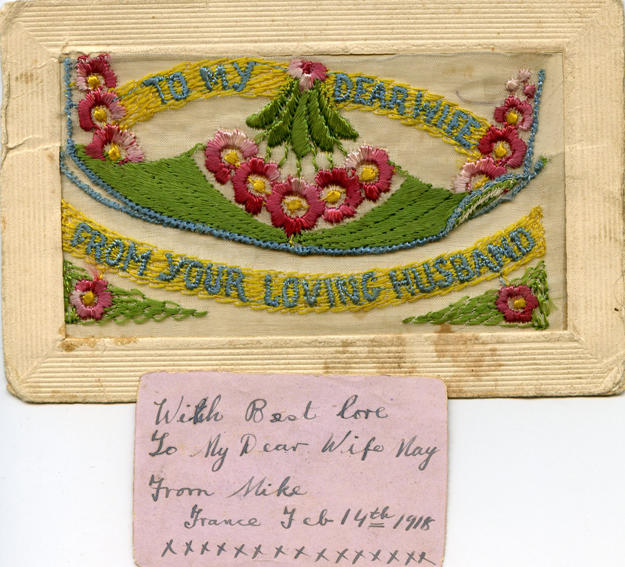 TO MY DEAR WIFE
FROM YOUR LOVING HUSBAND
With Best love
To My Dear Wife May
From Mike
France Feb 14th 1918
x x x x x x x x x x x x x x x